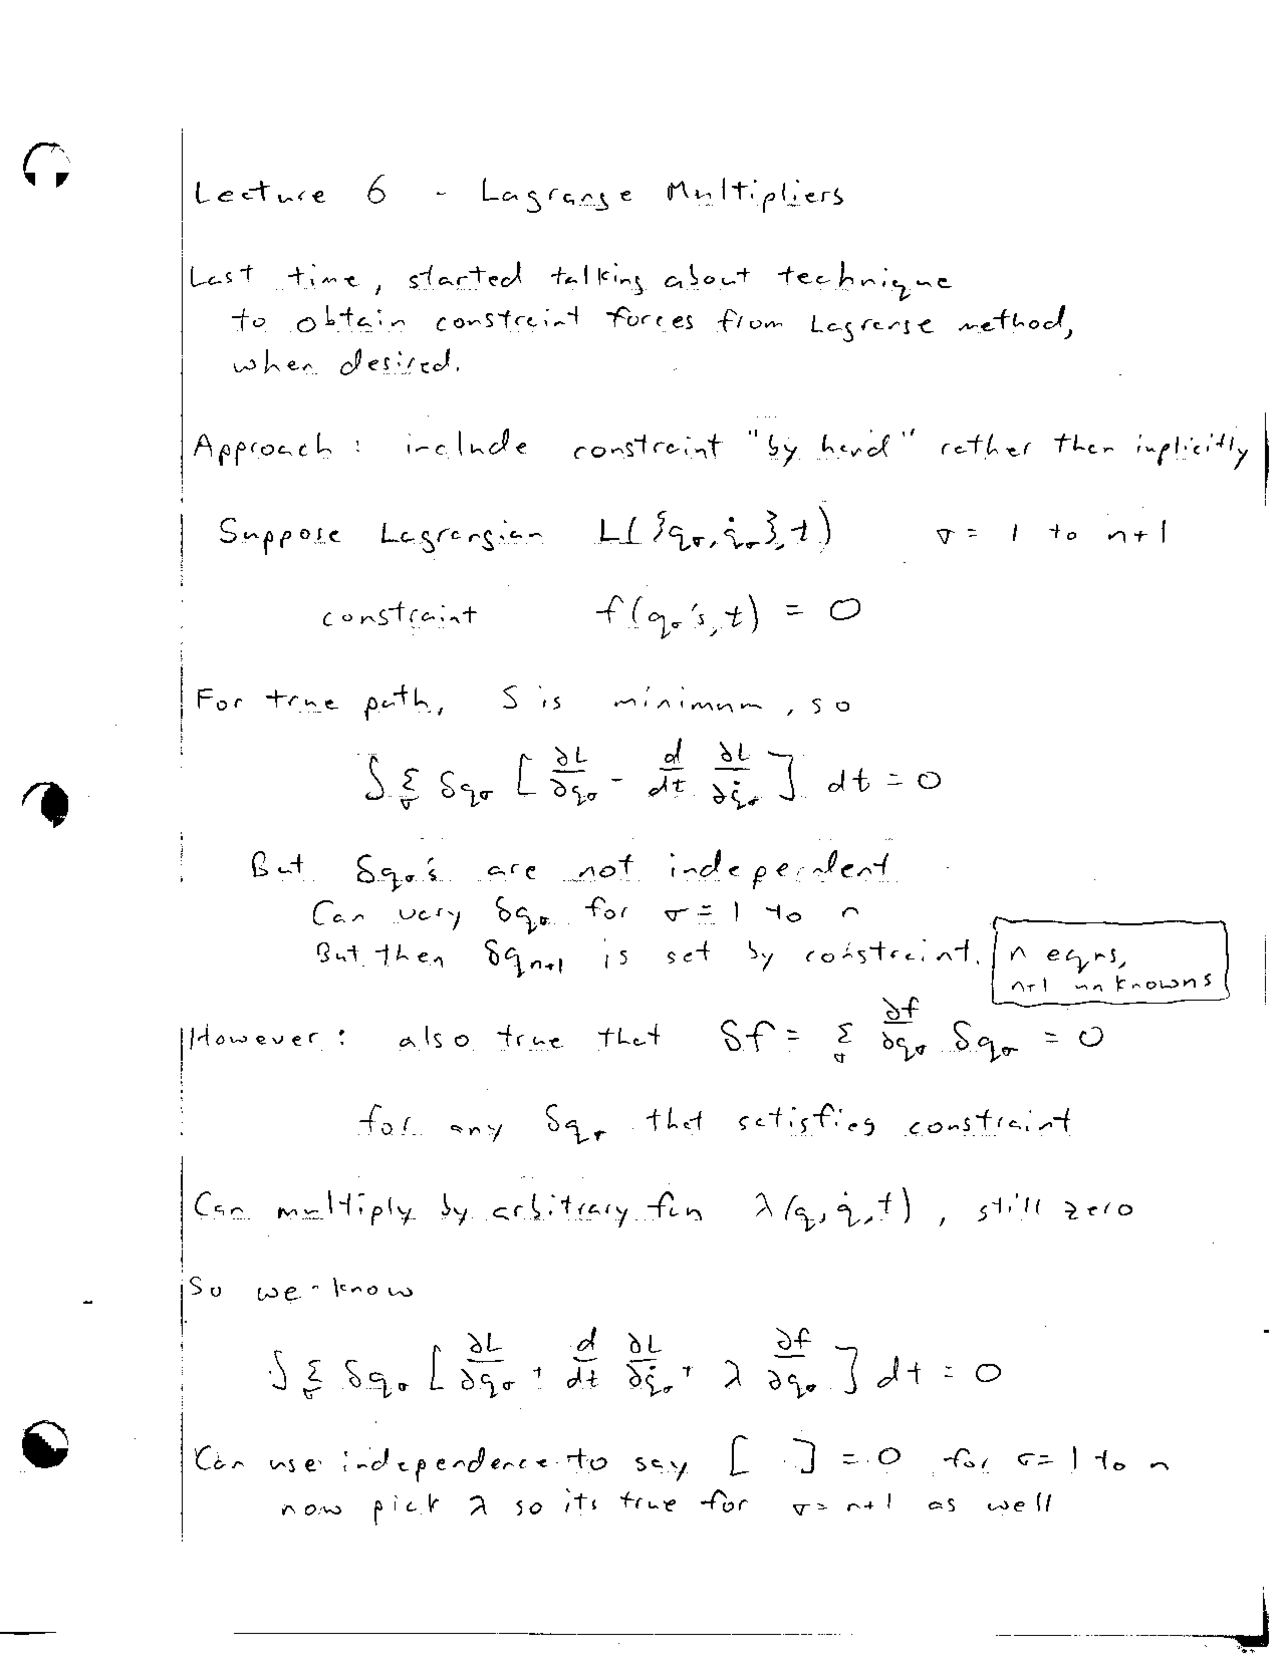 Lecture 6 - Lagrange Multipliers
Last time, started talking about technique
to obtain constraint forces from Lagrange method,
when desired.
Approach: include constraint "by hand" rather than implicitly
Suppose Lagrangian L({qσ, q̇σ}, t) σ = 1 to n+1
constraint f(qσ's, t) = 0
For true path, S is minimum, so
∫ Σσ δqσ [∂L/∂qσ - d/dt ∂L/∂q̇σ] dt = 0
But δqσ's are not independent
Can vary δqσ for σ = 1 to n
But then δqn+1 is set by constraint.
n eqns,
n+1 unknowns
However: also true that δf = Σσ ∂f/∂qσ δqσ = 0
for any δqσ that satisfies constraint
Can multiply by arbitrary fcn λ(q, q̇, t), still zero
So we know
∫ Σσ δqσ [∂L/∂qσ + d/dt ∂L/∂q̇σ + λ ∂f/∂qσ] dt = 0
Can use independence to say [ ] = 0 for σ = 1 to n
now pick λ so its true for σ = n+1 as well